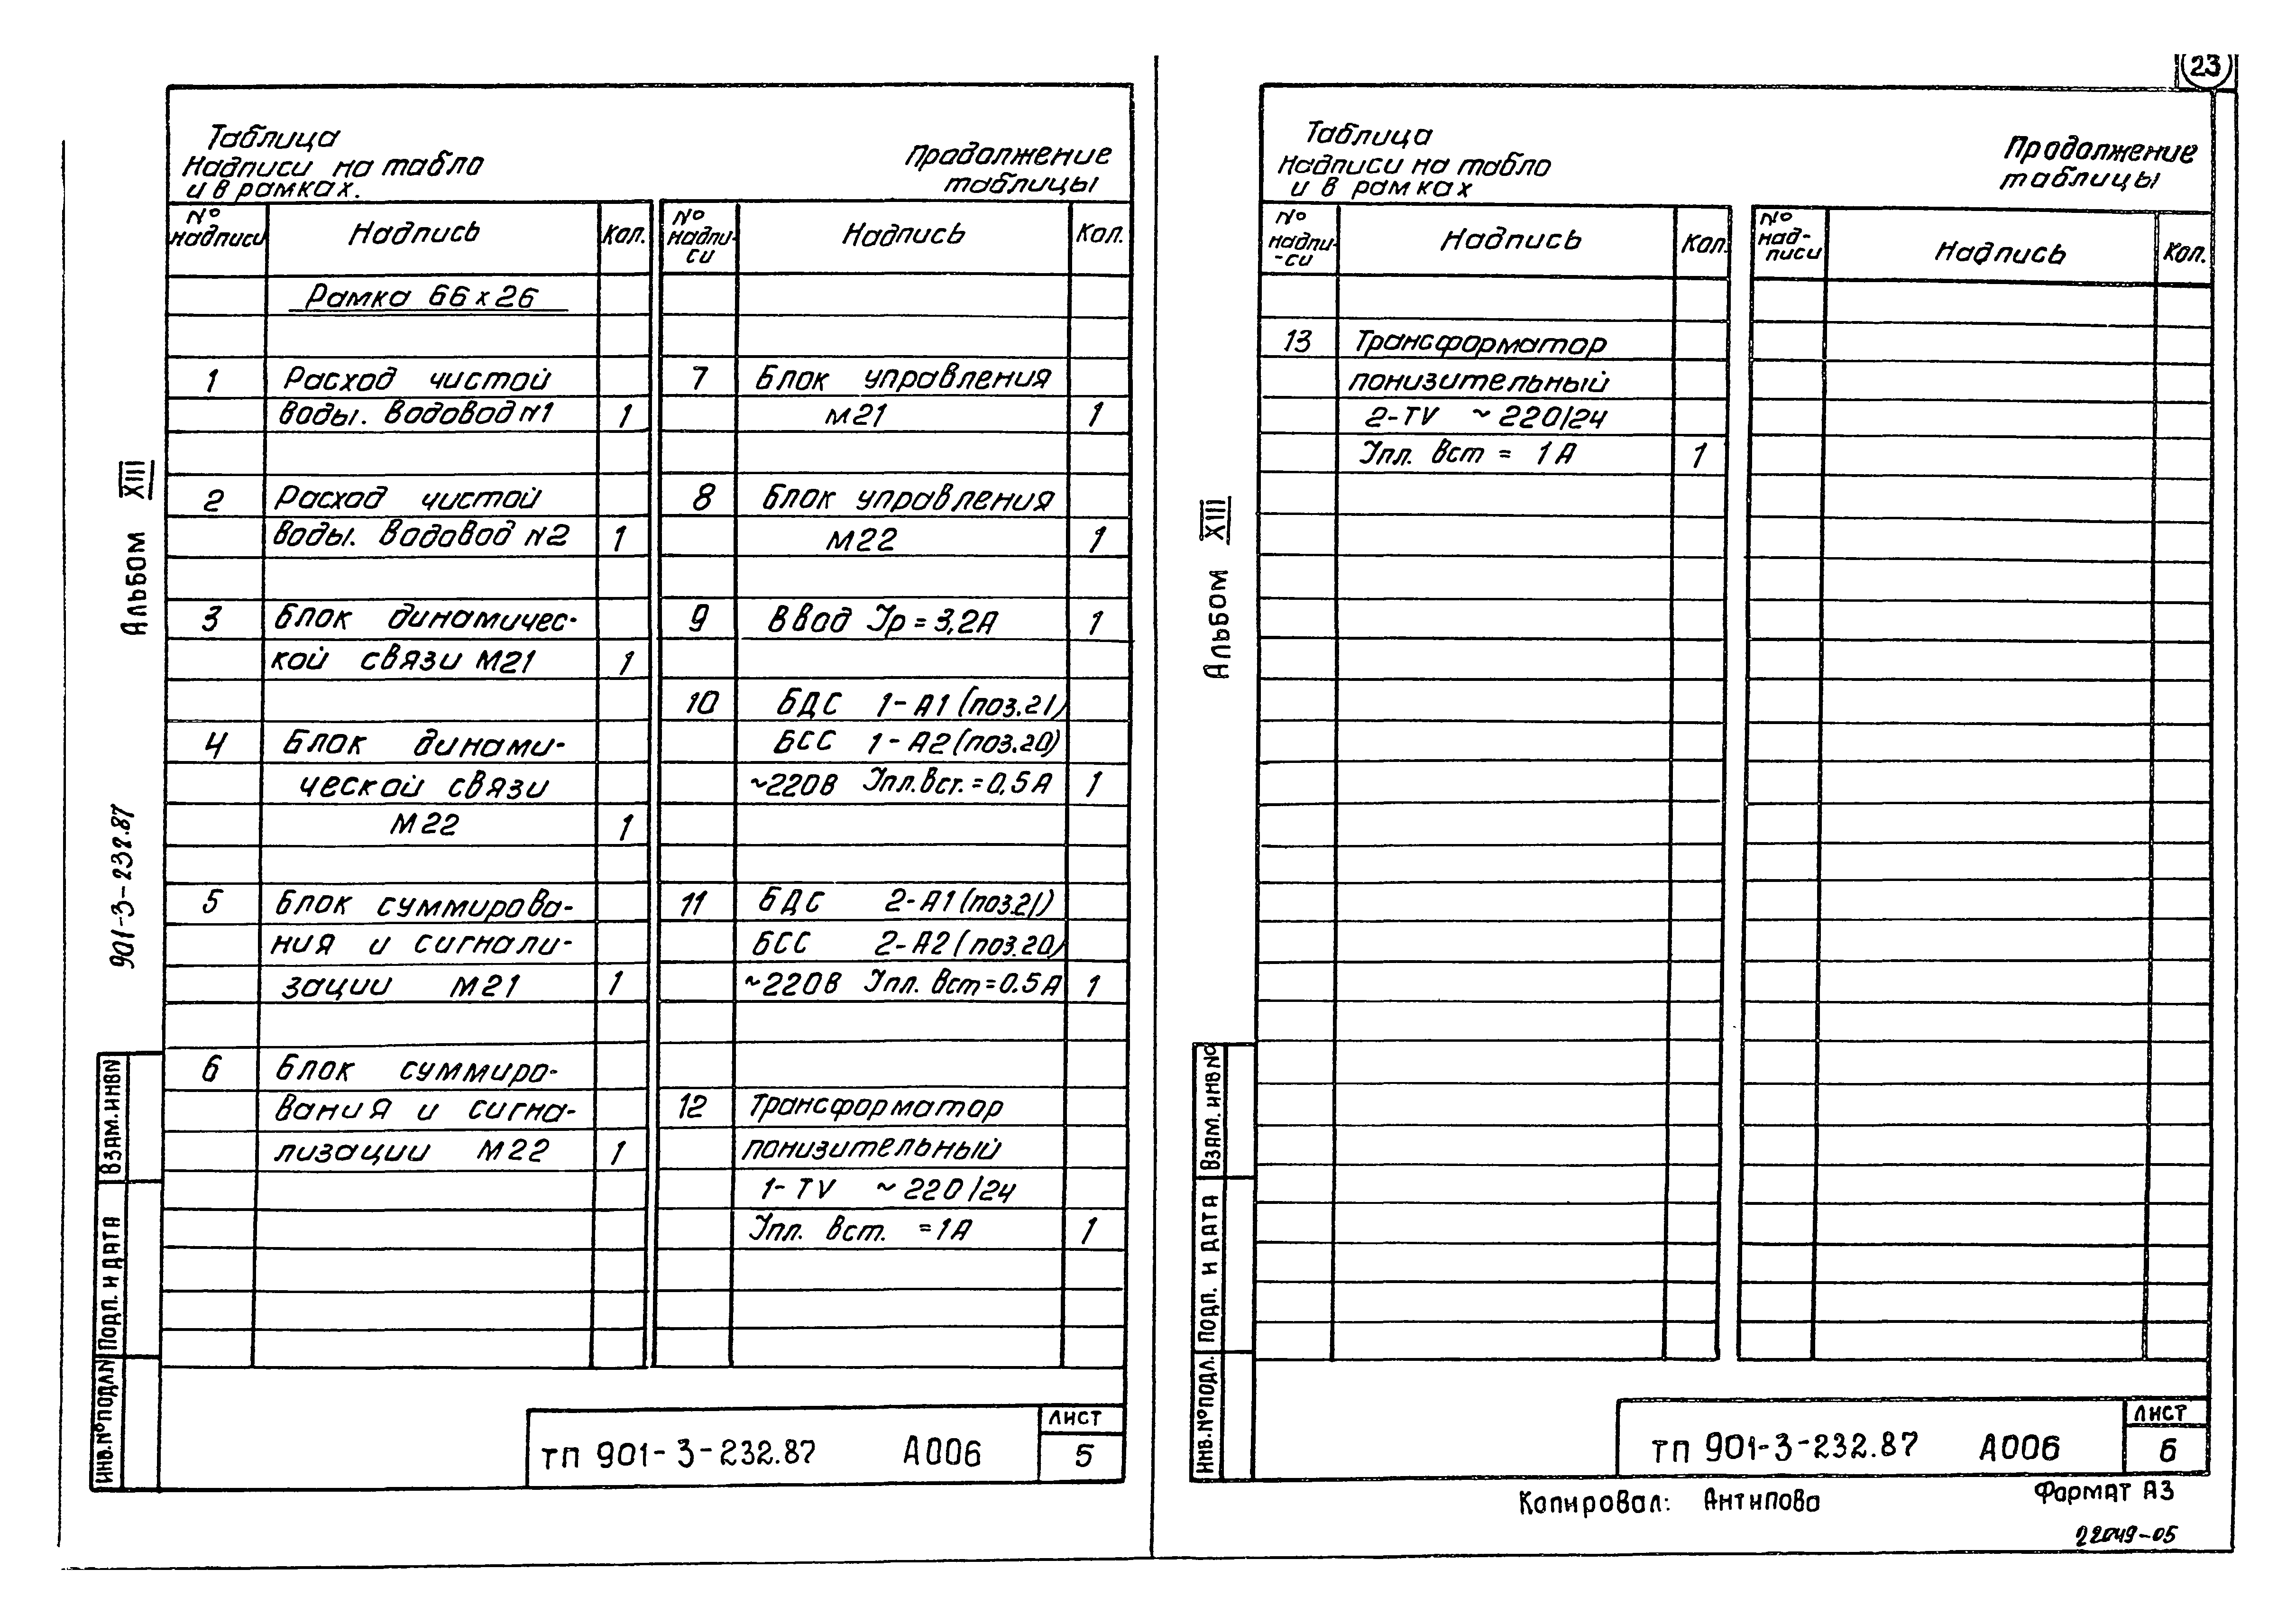 23
Таблица
Надписи на табло
и в рамках.
Продолжение
таблицы
№ надписи Надпись Кол.
Рамка 66 х 26
1 Расход чистой
воды. Водовод N1 1
2 Расход чистой
воды. Водовод N2 1
3 Блок динамичес-
кой связи М21 1
4 Блок динами-
ческой связи
М22 1
5 Блок суммирова-
ния и сигнали-
зации М21 1
6 Блок суммиро-
вания и сигна-
лизации М22 1
№ надпи-
си Надпись Кол.
7 Блок управления
М21 1
8 Блок управления
М22 1
9 Ввод Iр = 3,2А 1
10 БДС 1-А1 (поз.21)
БСС 1-А2 (поз.20)
~220В Iпл.Вст. = 0,5А 1
11 БДС 2-А1 (поз.21)
БСС 2-А2 (поз.20)
~220В Iпл. Вст = 0.5А 1
12 Трансформатор
понизительный
1-TV ~ 220/24
Iпл. Вст. = 1А 1
Альбом XIII
901-3-232.87
ВЗАМ.ИНВN
ПОДП. И ДАТА
ИНВ.№ПОДЛN
ТП 901-3-232.87 А006
ЛИСТ
5
Таблица
Надписи на табло
и в рамках
Продолжение
таблицы
№
надпи-
-си Надпись Кол.
13 Трансформатор
понизительный
2-TV ~ 220/24
Iпл. Вст = 1А 1
№
над-
писи Надпись Кол.
Альбом XIII
ВЗАМ. ИНВ №
ПОДП. И ДАТА
ИНВ.№ПОДЛ.
ТП 901-3-232.87 А006
ЛИСТ
6
Копировал: Антипова
Формат А3
22049-05